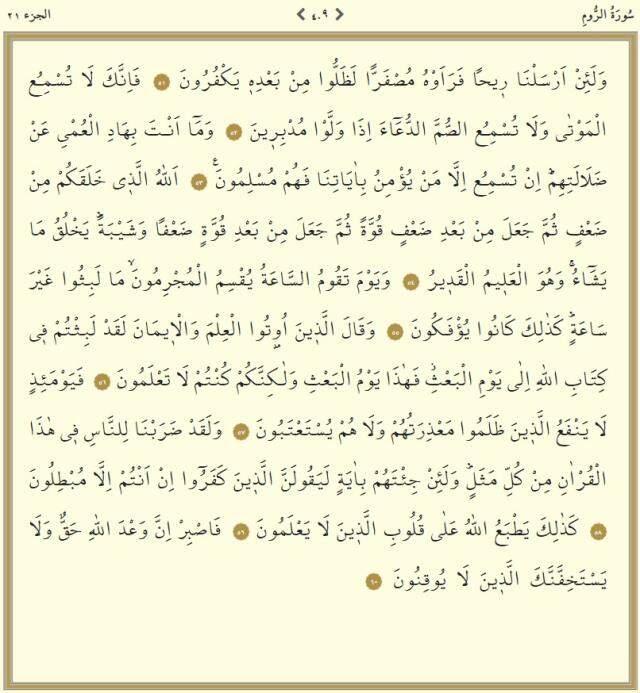 سُورَةُ الرُّومِ ٤٠٩ الجزء ٢١
وَلَئِنْ اَرْسَلْنَا رٖيحًا فَرَاَوْهُ مُصْفَرًّا لَظَلُّوا مِنْ بَعْدِهٖ يَكْفُرُونَ ٥١ فَاِنَّكَ لَا تُسْمِعُ
الْمَوْتٰى وَلَا تُسْمِعُ الصُّمَّ الدُّعَٓاءَ اِذَا وَلَّوْا مُدْبِرٖينَ ٥٢ وَمَٓا اَنْتَ بِهَادِ الْعُمْيِ عَنْ
ضَلَالَتِهِمْؕ اِنْ تُسْمِعُ اِلَّا مَنْ يُؤْمِنُ بِاٰيَاتِنَا فَهُمْ مُسْلِمُونَ ٥٣ اَللّٰهُ الَّذٖى خَلَقَكُمْ مِنْ
ضَعْفٍ ثُمَّ جَعَلَ مِنْ بَعْدِ ضَعْفٍ قُوَّةً ثُمَّ جَعَلَ مِنْ بَعْدِ قُوَّةٍ ضَعْفًا وَشَيْبَةًؕ يَخْلُقُ مَا
يَشَٓاءُۚ وَهُوَ الْعَلٖيمُ الْقَدٖيرُ ٥٤ وَيَوْمَ تَقُومُ السَّاعَةُ يُقْسِمُ الْمُجْرِمُونَۙ مَا لَبِثُوا غَيْرَ
سَاعَةٍؕ كَذٰلِكَ كَانُوا يُؤْفَكُونَ ٥٥ وَقَالَ الَّذٖينَ اُوتُوا الْعِلْمَ وَالْاٖيمَانَ لَقَدْ لَبِثْتُمْ فٖى
كِتَابِ اللّٰهِ اِلٰى يَوْمِ الْبَعْثِؗ فَهٰذَا يَوْمُ الْبَعْثِ وَلٰكِنَّكُمْ كُنْتُمْ لَا تَعْلَمُونَ ٥٦ فَيَوْمَئِذٍ
لَا يَنْفَعُ الَّذٖينَ ظَلَمُوا مَعْذِرَتُهُمْ وَلَا هُمْ يُسْتَعْتَبُونَ ٥٧ وَلَقَدْ ضَرَبْنَا لِلنَّاسِ فٖى هٰذَا
الْقُرْاٰنِ مِنْ كُلِّ مَثَلٍؕ وَلَئِنْ جِئْتَهُمْ بِاٰيَةٍ لَيَقُولَنَّ الَّذٖينَ كَفَرُٓوا اِنْ اَنْتُمْ اِلَّا مُبْطِلُونَ
٥٨ كَذٰلِكَ يَطْبَعُ اللّٰهُ عَلٰى قُلُوبِ الَّذٖينَ لَا يَعْلَمُونَ ٥٩ فَاصْبِرْ اِنَّ وَعْدَ اللّٰهِ حَقٌّ وَلَا
يَسْتَخِفَّنَّكَ الَّذٖينَ لَا يُوقِنُونَ ٦٠